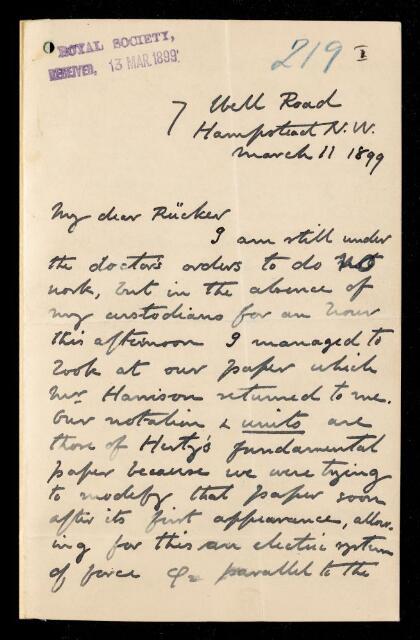 ROYAL SOCIETY,
RECEIVED, 13 MAR. 1899
219 I
7 Well Road
Hampstead N.W.
March 11 1899
My dear Rücker
I am still under
the doctor's orders to do no
work, but in the absence of
my custodians for an hour
this afternoon I managed to
look at our paper which
Mr Harrison returned to me.
Our notation & units are
those of Hertz's fundamental
paper because we were trying
to modify that paper soon
after its first appearance, allow-
ing for this an electric system
of force parallel to the